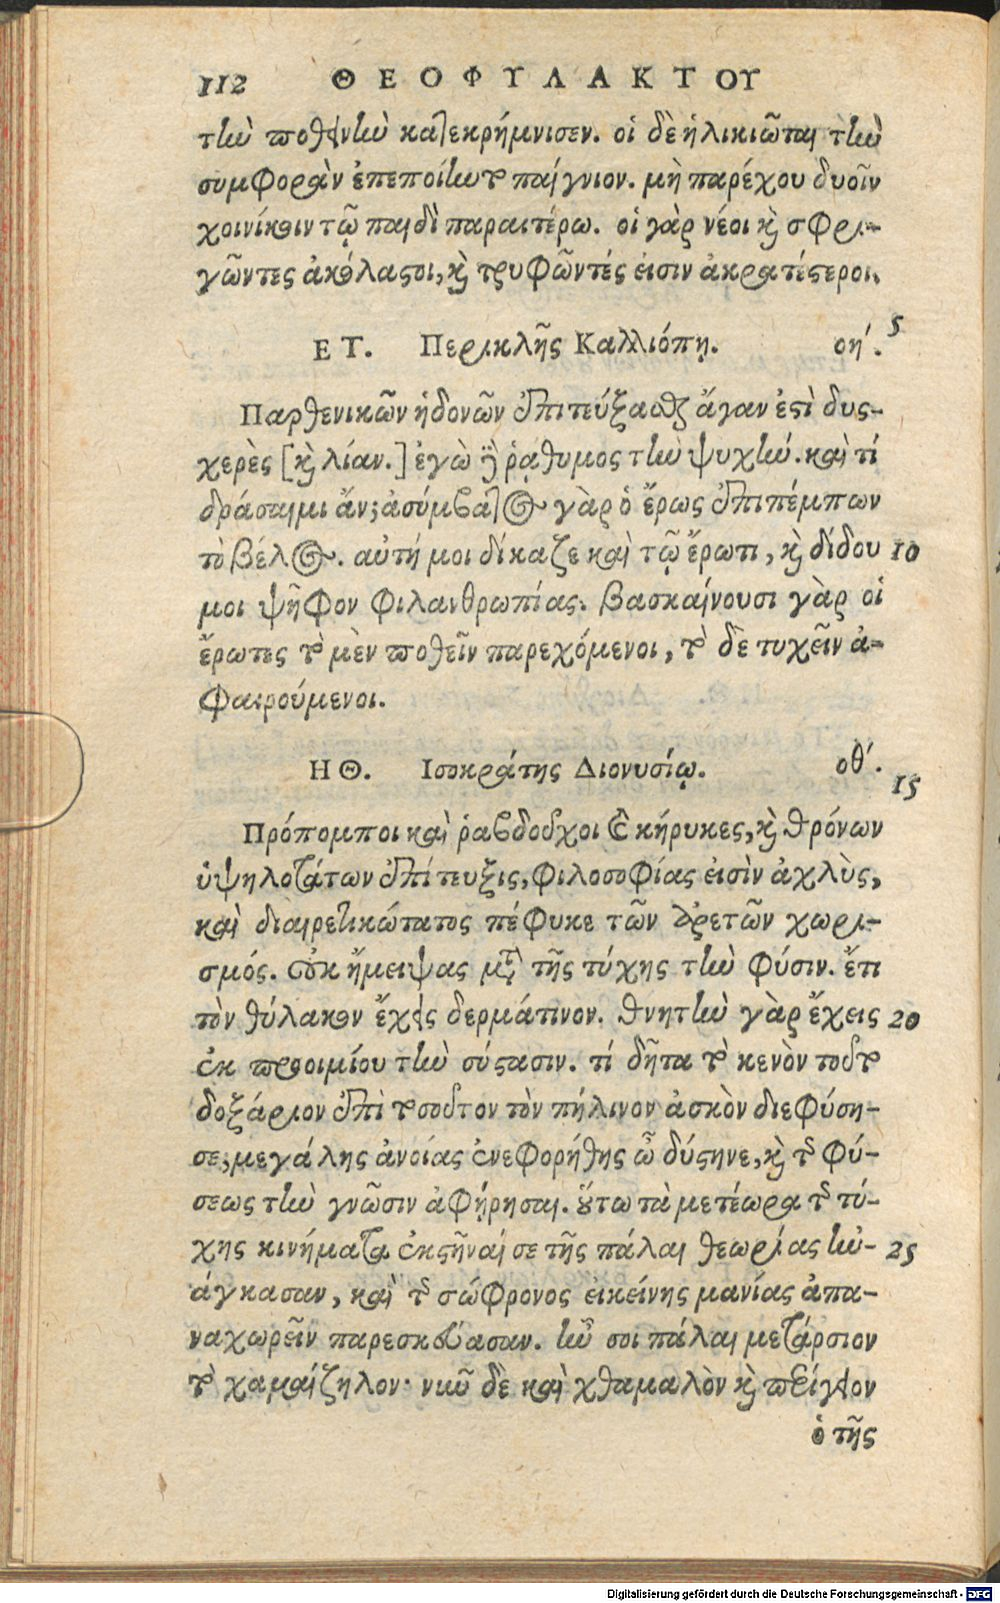 112 ΘΕΟΦΥΛΑΚΤΟΥ
τὴν ποθεινὴν κατεκρήμνισεν. οἱ δὲ ἡλικιῶται τὴν
συμφορὰν ἐπεποίηντο παίγνιον. μὴ παρέχου δυοῖν
χοινίκοιν τῷ παιδὶ παραιτέρω. οἱ γὰρ νέοι καὶ σφρι-
γῶντες ἀκόλαστοι, καὶ τρυφῶντές εἰσιν ἀκρατέστεροι.
5
ΕΤ. Περικλῆς Καλλιόπῃ. οη΄.
Παρθενικῶν ἡδονῶν ἐπιτεύξασθαι ἄγαν ἐστὶ δυσ-
χερὲς [καὶ λίαν.] ἐγὼ δὲ ῥᾴθυμος τὴν ψυχήν. καὶ τί
δράσαιμι ἄν; ἀσύμβατος γὰρ ὁ ἔρως ἐπιπέμπων
τὸ βέλος. αὐτή μοι δίκαζε καὶ τῷ ἔρωτι, καὶ δίδου 10
μοι ψῆφον φιλανθρωπίας. βασκαίνουσι γὰρ οἱ
ἔρωτες τὸ μὲν ποθεῖν παρεχόμενοι, τὸ δὲ τυχεῖν ἀ-
φαιρούμενοι.
ΗΘ. Ισοκράτης Διονυσίῳ. οθ΄.
15
Πρόπομποι καὶ ῥαβδοῦχοι καὶ κήρυκες, καὶ θρόνων
ὑψηλοτάτων ἐπίτευξις, φιλοσοφίας εἰσὶν ἀχλὺς,
καὶ διαιρετικώτατος πέφυκε τῶν ἀρετῶν χωρι-
σμός. οὐκ ἤμειψας μετὰ τῆς τύχης τὴν φύσιν. ἔτι
τὸν θύλακον ἔχεις δερμάτινον. θνητὴν γὰρ ἔχεις 20
ἐκ προοιμίου τὴν σύστασιν. τί δῆτα τὸ κενὸν τοῦτο
δοξάριον ἐπὶ τοσοῦτον τὸν πήλινον ἀσκὸν διεφύση-
σε; μεγάλης ἀνοίας ἐνεφορήθης ὦ δύστηνε, καὶ τῆς φύ-
σεως τὴν γνῶσιν ἀφῄρησαι. οὕτω τὰ μετέωρα τῆς τύ-
χης κινήματα ἐκστῆναί σε τῆς πάλαι θεωρίας ἠν- 25
άγκασαν, καὶ τῆς σώφρονος ἐκείνης μανίας ἀπα-
ναχωρεῖν παρεσκεύασαν. ἦν σοι πάλαι μετάρσιον
τὸ χαμαίζηλον· νῦν δὲ καὶ χθαμαλὸν καὶ περίγειον
ὁ τῆς
Digitalisierung gefördert durch die Deutsche Forschungsgemeinschaft - DFG